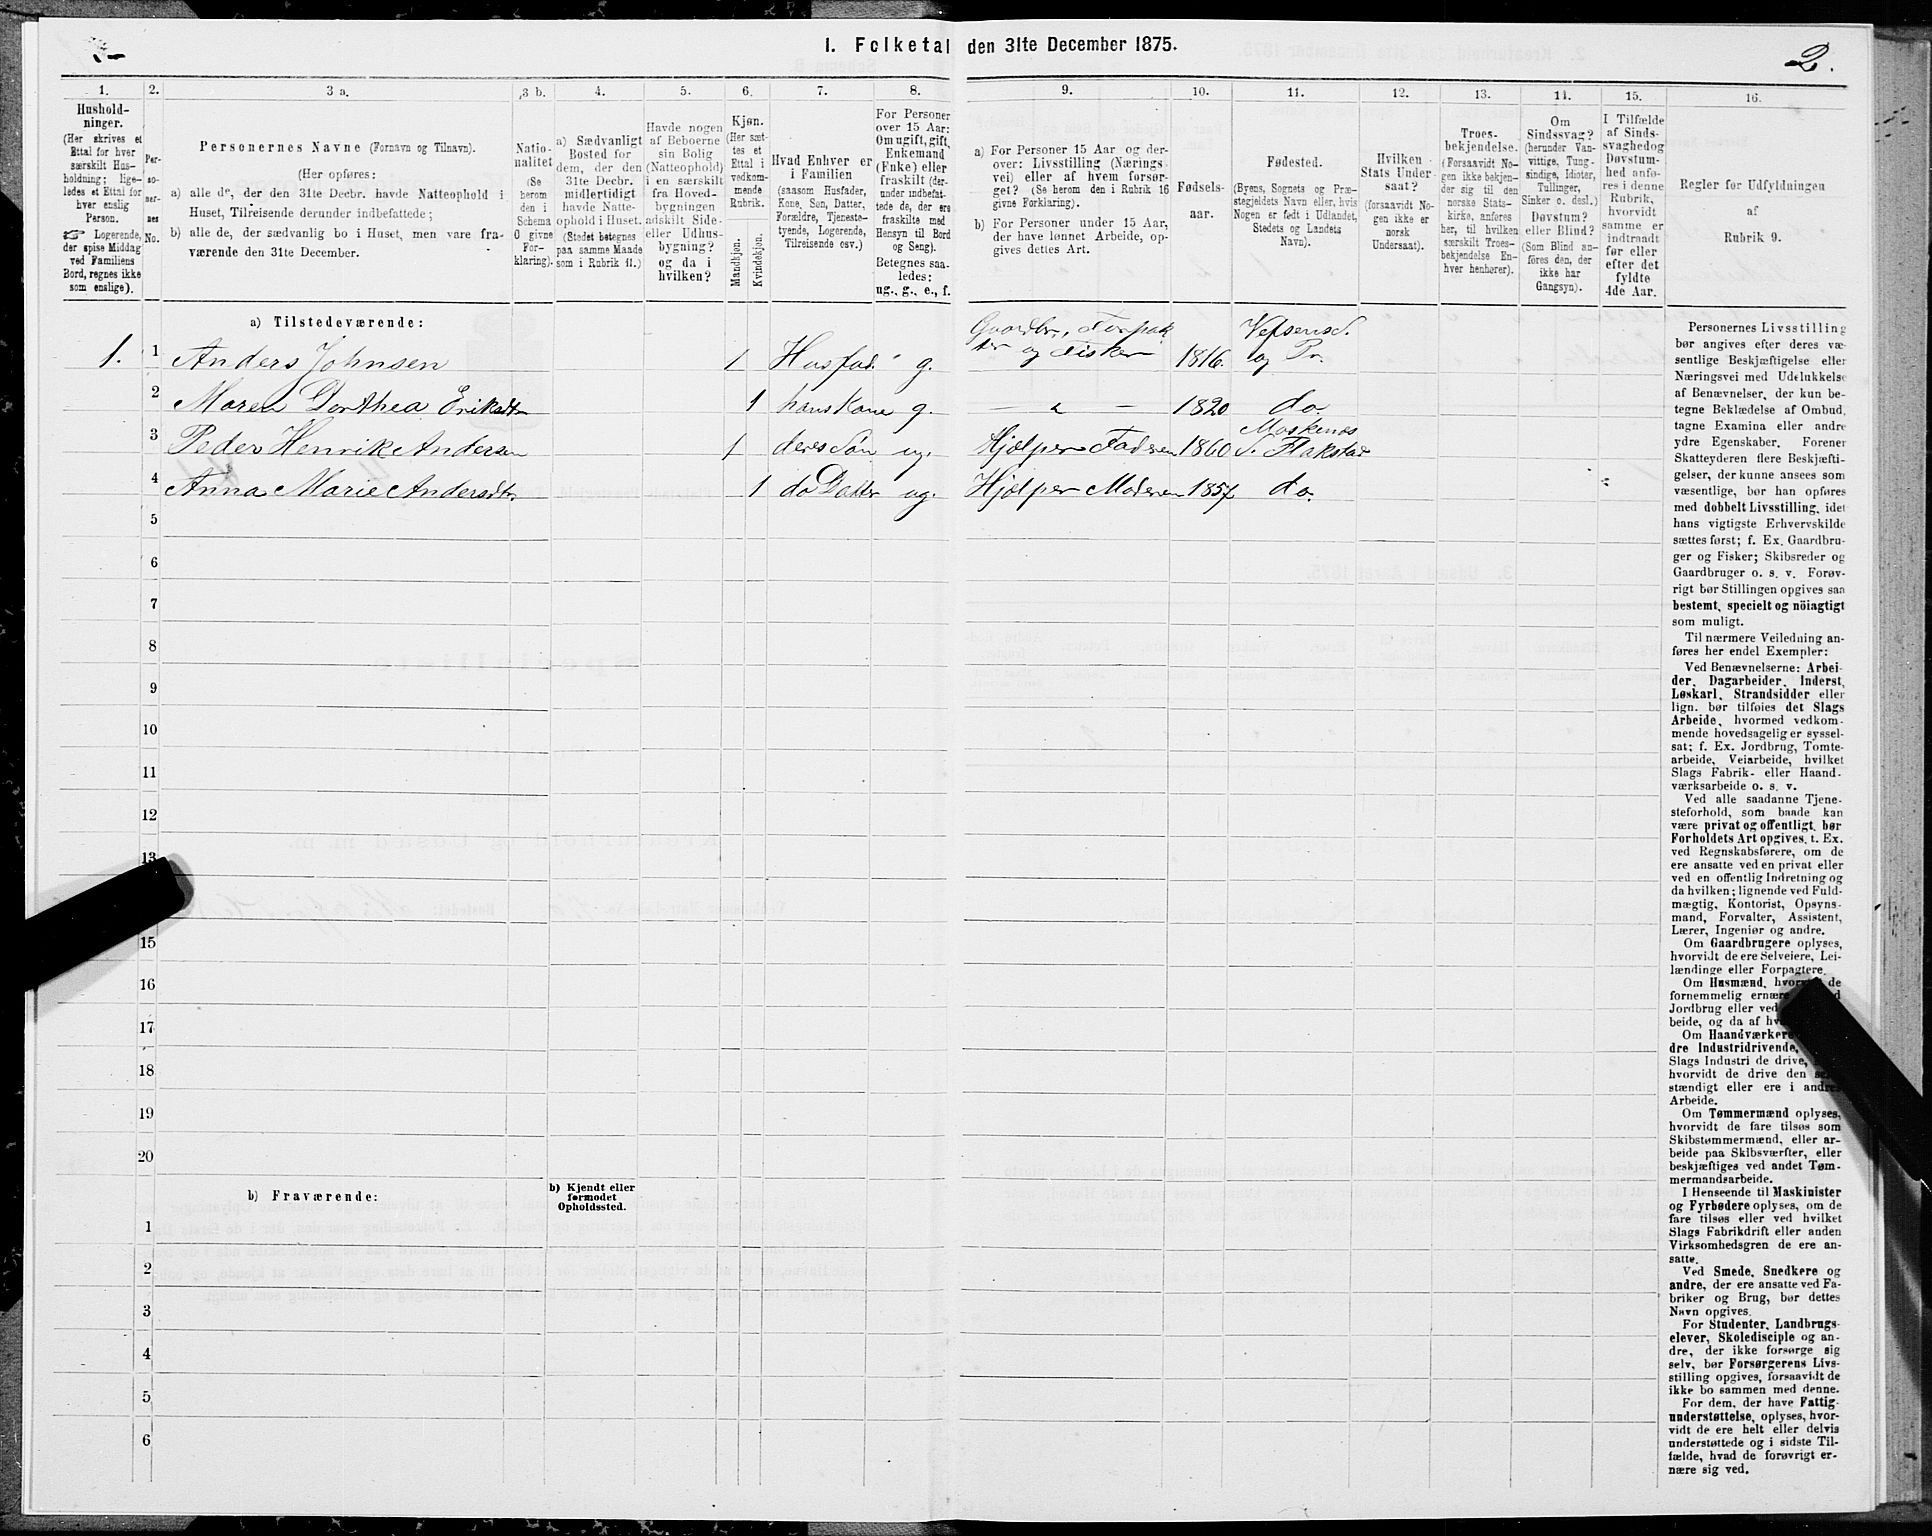 I. Folketal den 31te December 1875.
2.
1.
Hushold-
ninger.
(Her skrives et
Ettal for hver
særskilt Hus-
holdning; lige-
ledes et Ettal for
hver enslig
Person.
☞ Logerende,
der spise Middag
ved Familiens
Bord, regnes ikke
som enslige).
2.
Per-
so-
ner-
nes
No.
3 a.
Personernes Navne (Fornavn og Tilnavn).
(Her opføres:
a) alle de, der den 31te Decbr. havde Natteophold i
Huset, Tilreisende derunder indbefattede;
b) alle de, der sædvanlig bo i Huset, men vare fra-
værende den 31te December.
3 b.
Natio-
nalitet
(Se
herom
den i
Schema
O givne
For-
klaring).
4.
a) Sædvanligt
Bosted for
dem, der den
31te Decbr.
midlertidigt
havde Natte-
ophold i Huset.
(Stedet betegnes
paa samme Maade
som i Rubrik 11.)
5.
Havde nogen
af Beboerne
sin Bolig
(Natteophold)
i en særskilt
fra Hoved-
bygningen
adskilt Side-
eller Udhus-
bygning?
og da i
hvilken?
6.
Kjøn.
(Her sæt-
tes et
Ettal i
vedkom-
mende
Rubrik.
Mandkjøn.
Kvindekjøn.
7.
Hvad Enhver er
i Familien
(saasom Husfader,
Kone, Søn, Datter,
Forældre, Tjeneste-
tyende, Logerende,
Tilreisende osv.)
8.
For Personer
over 15 Aar:
Om ugift, gift,
Enkemand
(Enke) eller
fraskilt (der-
under indbefat-
tede de, der ere
fraskilte med
Hensyn til Bord
og Seng).
Betegnes saa-
ledes:
ug., g., e., f.
9.
a) For Personer 15 Aar og der-
over: Livsstilling (Nærings-
vei) eller af hvem forsør-
get? (Se herom den i Rubrik 16
givne Forklaring).
b) For Personer under 15 Aar,
der have lønnet Arbeide, op-
gives dettes Art.
10.
Fødsels-
aar.
11.
Fødested.
(Byens, Sognets og Præ-
stegjeldets Navn eller, hvis
Nogen er født i Udlandet,
Stedets og Landets
Navn).
12.
Hvilken
Stats Under-
saat?
(forsaavidt No-
gen ikke er
norsk
Undersaat).
13.
Troes-
bekjendelse.
(Forsaavidt No-
gen ikke bekjen-
der sig til den
norske Stats-
kirke, anføres
her, til hvilken
særskilt Troes-
bekjendelse En-
hver henhører).
14.
Om
Sindssvag?
(herunder Van-
vittige, Tung-
sindige, Idioter,
Tullinger,
Sinker o. desl.)
Døvstum?
eller Blind?
(Som Blind an-
føres den, der
ikke har
Gangsyn).
15.
I Tilfælde
af Sinds-
svaghed og
Døvstum-
hed anfø-
res i denne
Rubrik,
hvorvidt
samme er
indtraadt
før eller
efter det
fyldte
4de Aar.
16.
Regler før Udfyldningen
af
Rubrik 9.
a) Tilstedeværende:
1. 1 Anders Johnsen 1 Husfad. g. Gaardbr., Forpak
ter og Fisker 1816. Vefsens S.
og Pr.
2 Maren Dorthea Eriksdtr 1 hans Kone g. — " — 1820 do.
3 Peder Henrik Andersen 1 deres Søn ug. Hjælper Faderen 1860 Moskenæs
S. Flakstad
4 Anna Marie Andersdtr. 1 do Datter ug. Hjælper Moderen 1857 do.
5
6
7
8
9
10
11
12
13
15
16
17
18
19
20
b) Fraværende:
b) Kjendt eller
formodet
Opholdssted.
1
2
3
4
5
6
Personernes Livsstilling
bør angives efter deres væ-
sentlige Beskjæftigelse eller
Næringsvei med Udelukkelse
af Benævnelser, der kun be-
tegne Beklædelse af Ombud,
tagne Examina eller andre
ydre Egenskaber. Forener
Skatteyderen flere Beskjæfti-
gelser, der kunne ansees som
væsentlige, bør han opføres
med dobbelt Livsstilling, idet
hans vigtigste Erhvervskilde
sættes først; f. Ex. Gaardbru-
ger og Fisker; Skibsreder og
Gaardbruger o. s. v. Forøv-
rigt bør Stillingen opgives saa
bestemt, specielt og nöiagtigt
som muligt.
Til nærmere Veiledning an-
føres her endel Exempler:
Ved Benævnelserne: Arbei-
der, Dagarbeider, Inderst,
Løskarl, Strandsidder eller
lign. bør tilføies det Slags
Arbeide, hvormed vedkom-
mende hovedsagelig er syssel-
sat; f. Ex. Jordbrug, Tomte-
arbeide, Veiarbeide, hvilket
Slags Fabrik- eller Haand-
værksarbeide o. s. v.
Ved alle saadanne Tjene-
steforhold, som baade kan
være privat og offentligt, bør
Forholdets Art opgives, t. Ex.
ved Regnskabsførere, om de
ere ansatte ved en privat eller
ved en offentlig Indretning og
da hvilken; lignende ved Fuld-
mægtig, Kontorist, Opsyns-
mand, Forvalter, Assistent,
Lærer, Ingeniør og andre.
Om Gaardbrugere oplyses,
hvorvidt de ere Selveiere, Lei-
lændinge eller Forpagtere.
Om Husmænd, de
fornemmelig ernære
Jordbrug eller ved
beide, og da af
Om Haandværkere
dre Industridrivende,
Slags Industri de drive,
hvorvidt de drive den
stændigt eller ere i andres
Arbeide.
Om Tømmermænd oplyses,
hvorvidt de fare tilsøs som
Skibstømmermænd, eller ar-
beide paa Skibsværfter, eller
beskjæftiges ved andet Tøm-
mermandsarbeide.
I Henseende til Maskinister
og Fyrbødere oplyses, om de
fare tilsøs eller ved hvilket
Slags Fabrikdrift eller anden
Virksomhedsgren de ere an-
satte.
Ved Smede, Snedkere og
andre, der ere ansatte ved Fa-
briker og Brug, bør dettes
Navn opgives.
For Studenter, Landbrugs-
elever, Skoledisciple og an-
dre, der ikke forsørge sig
selv, bør Forsørgerens Livs-
stilling opgives, forsaavidt de
ikke bo sammen med denne.
For dem, der have Fattig-
understøttelse, oplyses, hvor-
vidt de ere helt eller delvis
understøttede og i sidste Til-
fælde, hvad de forøvrigt er-
nære sig ved.